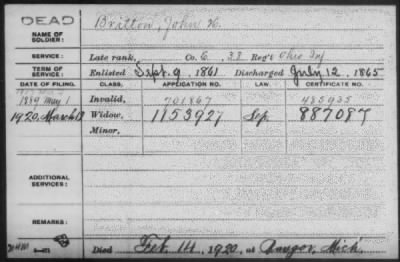 DEAD
NAME OF SOLDIER: Britton, John H.
SERVICE: Late rank, Co. E, 38 Reg't Ohio Inf
TERM OF SERVICE: Enlisted Sept. 9, 1861 Discharged July 12, 1865
DATE OF FILING. CLASS. APPLICATION NO. LAW. CERTIFICATE NO.
1889 May 1 Invalid, 701867 485935
1920, March 12 Widow, 1153927 Sep 887087
Minor,
ADDITIONAL SERVICES:
REMARKS:
Died Feb 14, 1920, at Bangor, Mich.